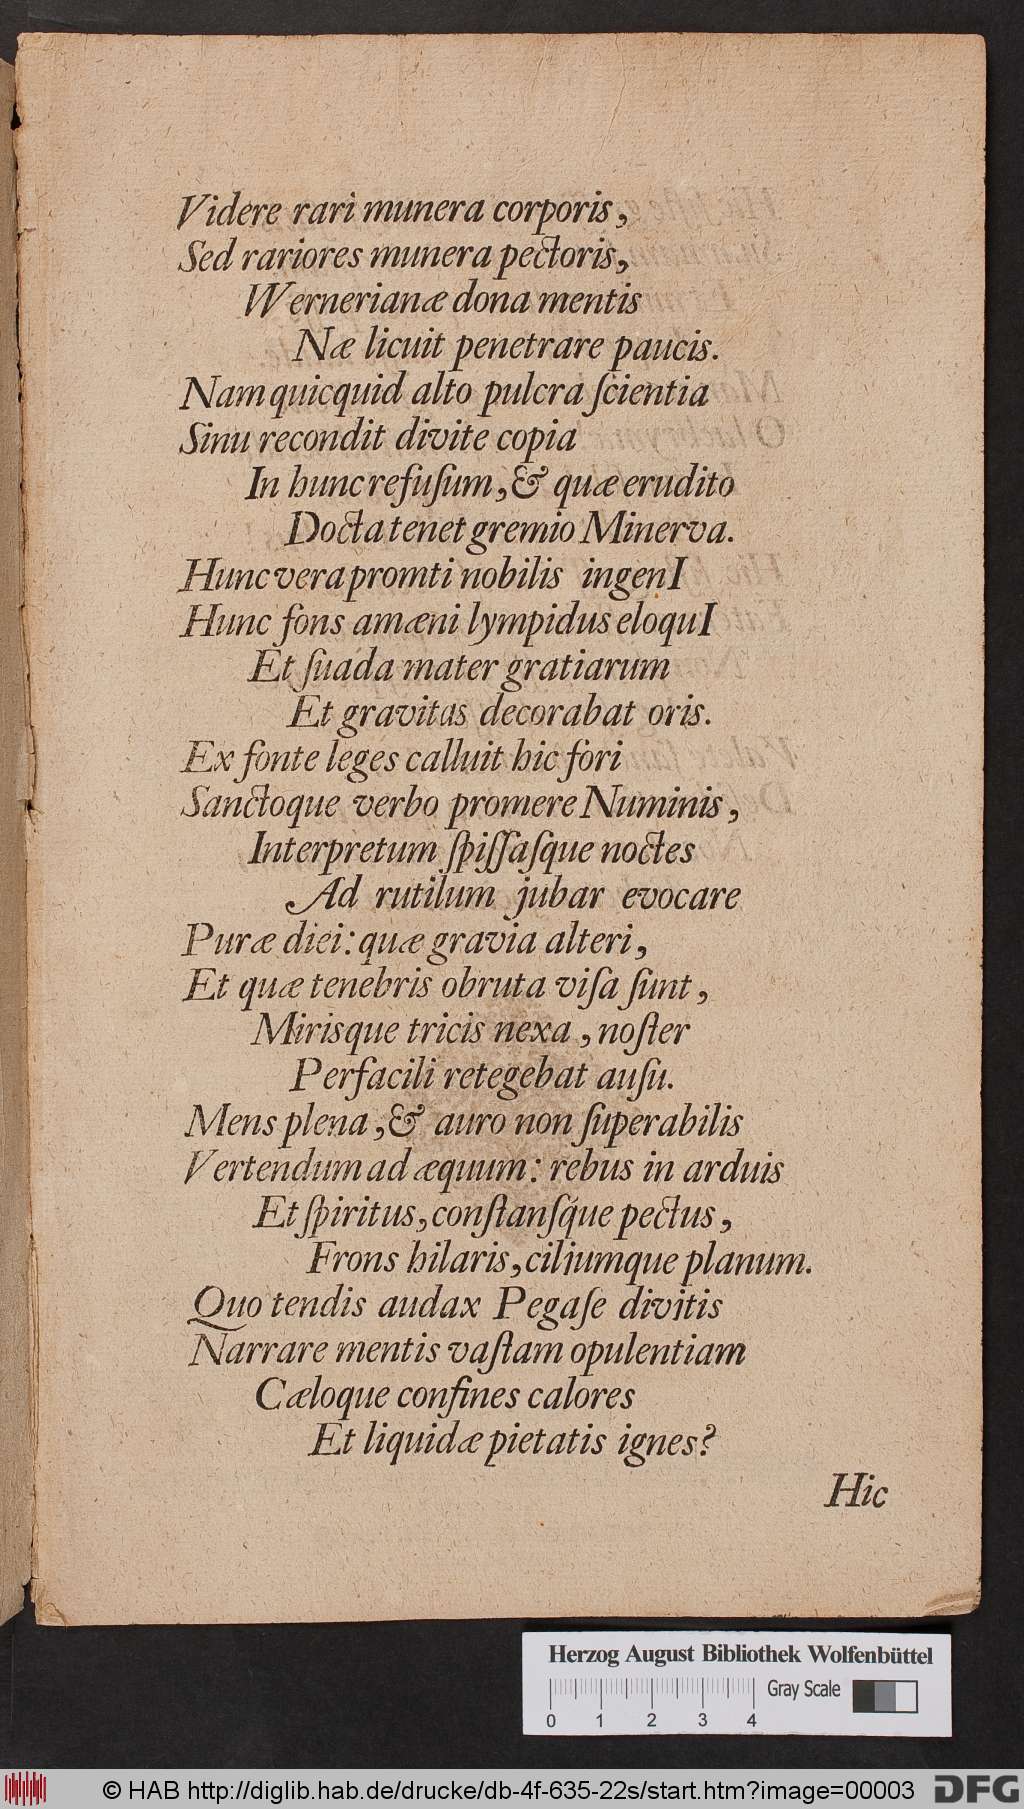 Videre rari munera corporis,
Sed rariores munera pectoris,
Wernerianæ dona mentis
Næ licuit penetrare paucis.
Nam quicquid alto pulcra ſcientia
Sinu recondit divite copia
In hunc refuſum, & quæ erudito
Docta tenet gremio Minerva.
Hunc vera promti nobilis ingenI
Hunc fons amæni lympidus eloquI
Et ſuada mater gratiarum
Et gravitas decorabat oris.
Ex fonte leges calluit hic fori
Sanctoque verbo promere Numinis,
Interpretum ſpiſſaſque noctes
Ad rutilum jubar evocare
Puræ diei: quæ gravia alteri,
Et quæ tenebris obruta viſa ſunt,
Mirisque tricis nexa, noſter
Perfacili retegebat auſu.
Mens plena, & auro non ſuperabilis
Vertendum ad æquum: rebus in arduis
Et ſpiritus, conſtanſq́ue pectus,
Frons hilaris, ciliumque planum.
Quo tendis audax Pegaſe divitis
Narrare mentis vaſtam opulentiam
Cæloque confines calores
Et liquidæ pietatis ignes?
Hic
Herzog August Bibliothek Wolfenbüttel
Gray Scale
0 1 2 3 4
© HAB http://diglib.hab.de/drucke/db-4f-635-22s/start.htm?image=00003
DFG